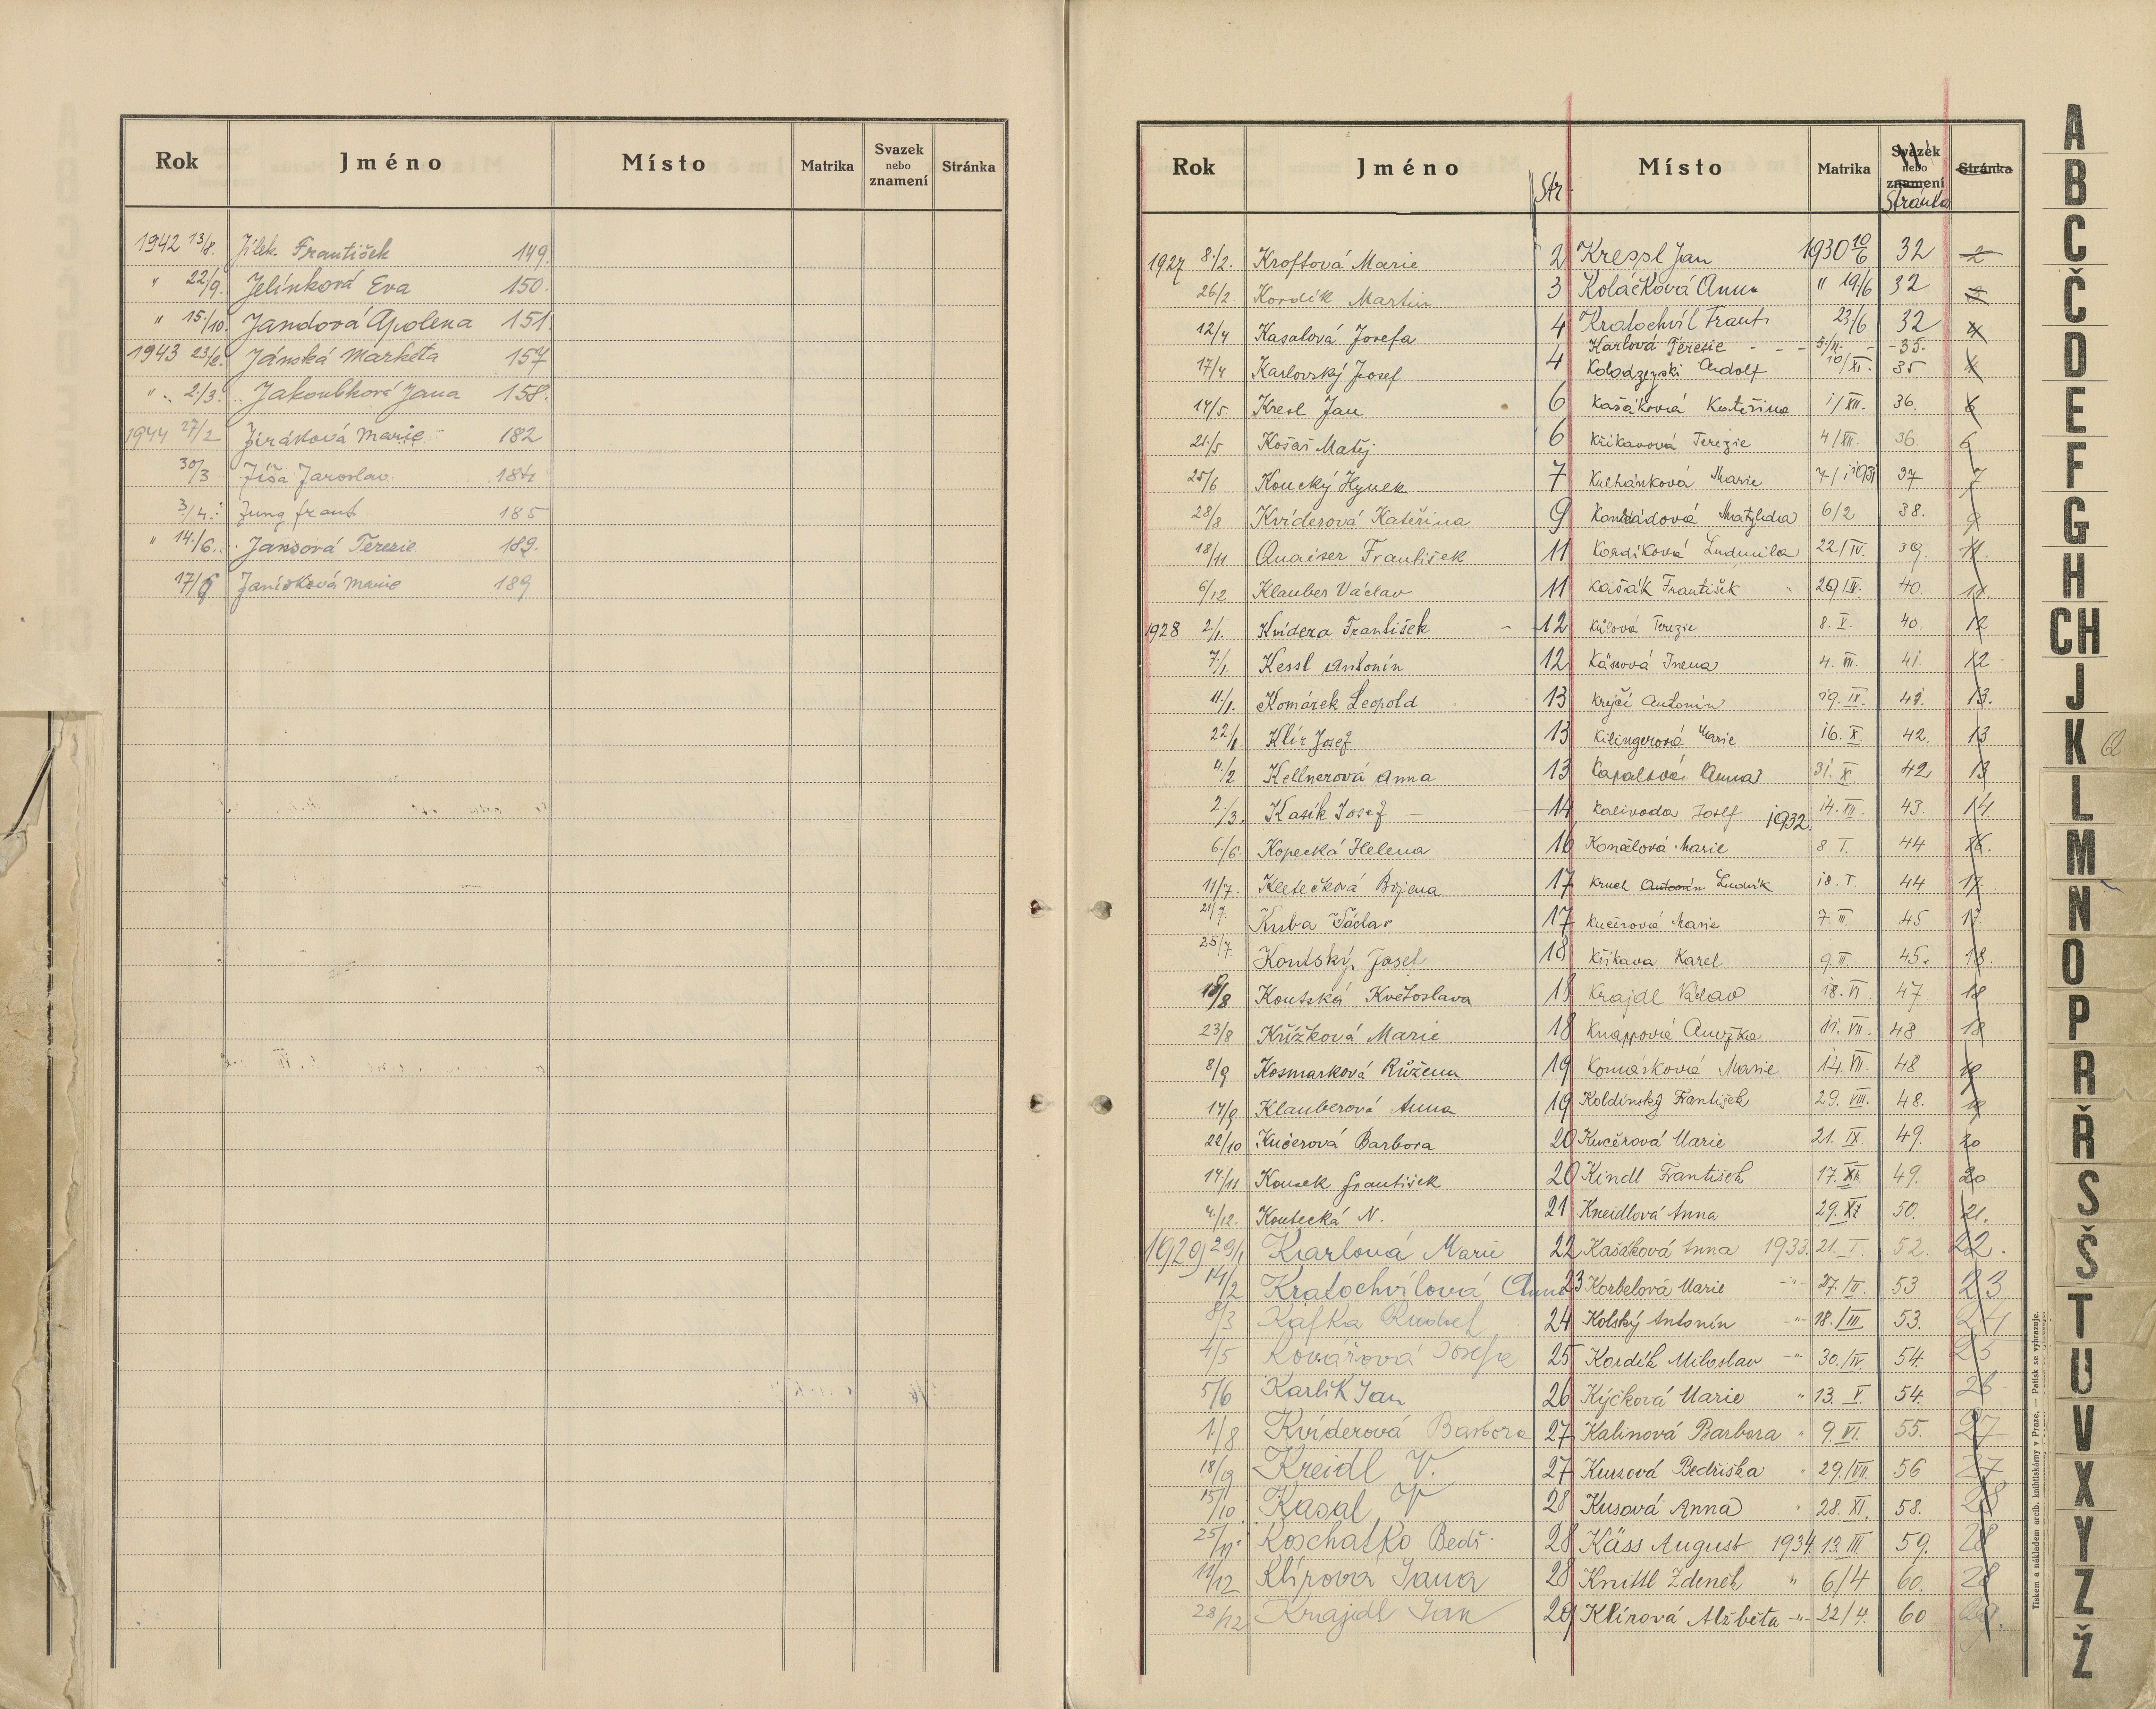 Rok Jméno Místo Matrika Svazek nebo znamení Stránka
1942 13/8. Jílek František 149.
" 22/9. Jelínková Eva 150.
" 15/10. Jandová Apolena 151.
1943 23/2. Jánská Markéta 157
" 2/3. Jakoubková Jana 158.
1944 27/2 Jiráková Marie 182
30/3 Jíša Jaroslav 184
3/4. Jung Frant. 185
" 14/6. Jansová Terezie 189.
17/6 Janisková Marie 189
Rok Jméno Str. Místo Matrika Svazek nebo znamení Stránka Stránka
1927 8/2. Kroftová Marie 2 Kressl Jan 1930 10/6 32 2
26/2. Kordík Martin 3 Koláčková Anna " 19/6 32 3
12/4 Kasalová Josefa 4 Kratochvíl Frant. 23/6 32 4
Karlová Terezie - - - 5/11. - -35.
17/4 Karlovský Josef 4 Kolodzejski Rudolf 10/XI. 35 4
14/5 Kresl Jan 6 Kašáková Kateřina 1/XII. 36. 6
21/5 Košař Matěj 6 Křikavová Terezie 4/XII. 36 6
25/6 Koucký Hynek 7 Kulhánková Marie 7/1 1931 37 7
28/8 Kvíderová Kateřina 9 Konrádová Matylda 6/2 38. 9
18/11 Quaiser František 11 Kordíková Ludmila 22/IV. 39. 11.
6/12 Klauber Václav 11 Kašák František 29/IV. 40 11.
1928 2/1. Kvídera František - 12 Kůlová Terezie 8. V. 40. 12
7/1. Kessl Antonín 12 Kässová Irena 4. VII. 41. 12
11/1. Komárek Leopold 13 Krejčí Antonín 19. IX. 41. 13.
22/1. Klír Josef 13 Kilingerová Marie 16. X. 42. 13
4/2 Kellnerová Anna 13 Kapalová Anna 31. X. 42 13
2/3. Kasík Josef - 14 Kalivoda Josef 1932 14. XII. 43. 14.
6/6. Kopecká Helena 16 Konalová Marie 8. I. 44 16.
11/7. Kletečková Božena 17 Kruch Antonín Ludvík 18. I. 44 17
21/7. Kuba Václav 17 Kučerová Marie 7. II. 45 17
25/7. Koutský Josef 18 Křikava Karel 9. II. 45. 18.
18/8 Koutská Květoslava 18 Krajdl Václav 18. VI 47 18
23/8 Křížková Marie 18 Knappová Anežka 11. VII. 48 18
8/9 Kosmarková Růžena 19 Komárková Marie 14. VII. 48 19
14/9 Klauberová Anna 19 Koldinský František 29. VIII. 48. 19
22/10 Kučerová Barbora 20 Kučerová Marie 21. IX. 49. 20
14/11 Kousek František 20 Kindl František 17. XI. 49. 20
4/12. Koutecká N. 21 Kneidlová Anna 29. XI 50. 21.
1929 29/1 Karlová Marie 22 Kašáková Anna 1933. 21. I. 52. 22.
14/2 Kratochvílová Anna 23 Korbelová Marie -"- 27. II. 53 23
8/3 Kafka Rudolf 24 Kolský Antonín -"- 18. III 53. 24
4/5 Kovářová Josefa 25 Kordík Miloslav -"- 30. IV. 54. 25
5/6 Karlík Jan 26 Kýčková Marie " 13. V 54. 26
1/8 Kvíderová Barbora 27 Kalinová Barbora " 9. VI. 55. 27
18/9 Kreidl V. 27 Kurzová Bedřiška " 29. VII. 56 27
15/10. Kasal V 28 Kusová Anna " 28. XI. 58. 28
25/11. Koschatko Bedř. 28 Käss August 1934 13. III 59. 28
11/12 Klírová Jana 28 Knittl Zdeněk " 6/4 60. 28
28/12 Krajdl Jan 29 Klírová Alžběta -"- 22/4. 60 29.
Tiskem a nákladem arcib. knihtiskárny v Praze. — Patisk se vyhrazuje.
A
B
C
Č
D
E
F
G
H
CH
J
K Q
L
M
N
O
P
R
Ř
S
Š
T
U
V
X
Y
Z
Ž